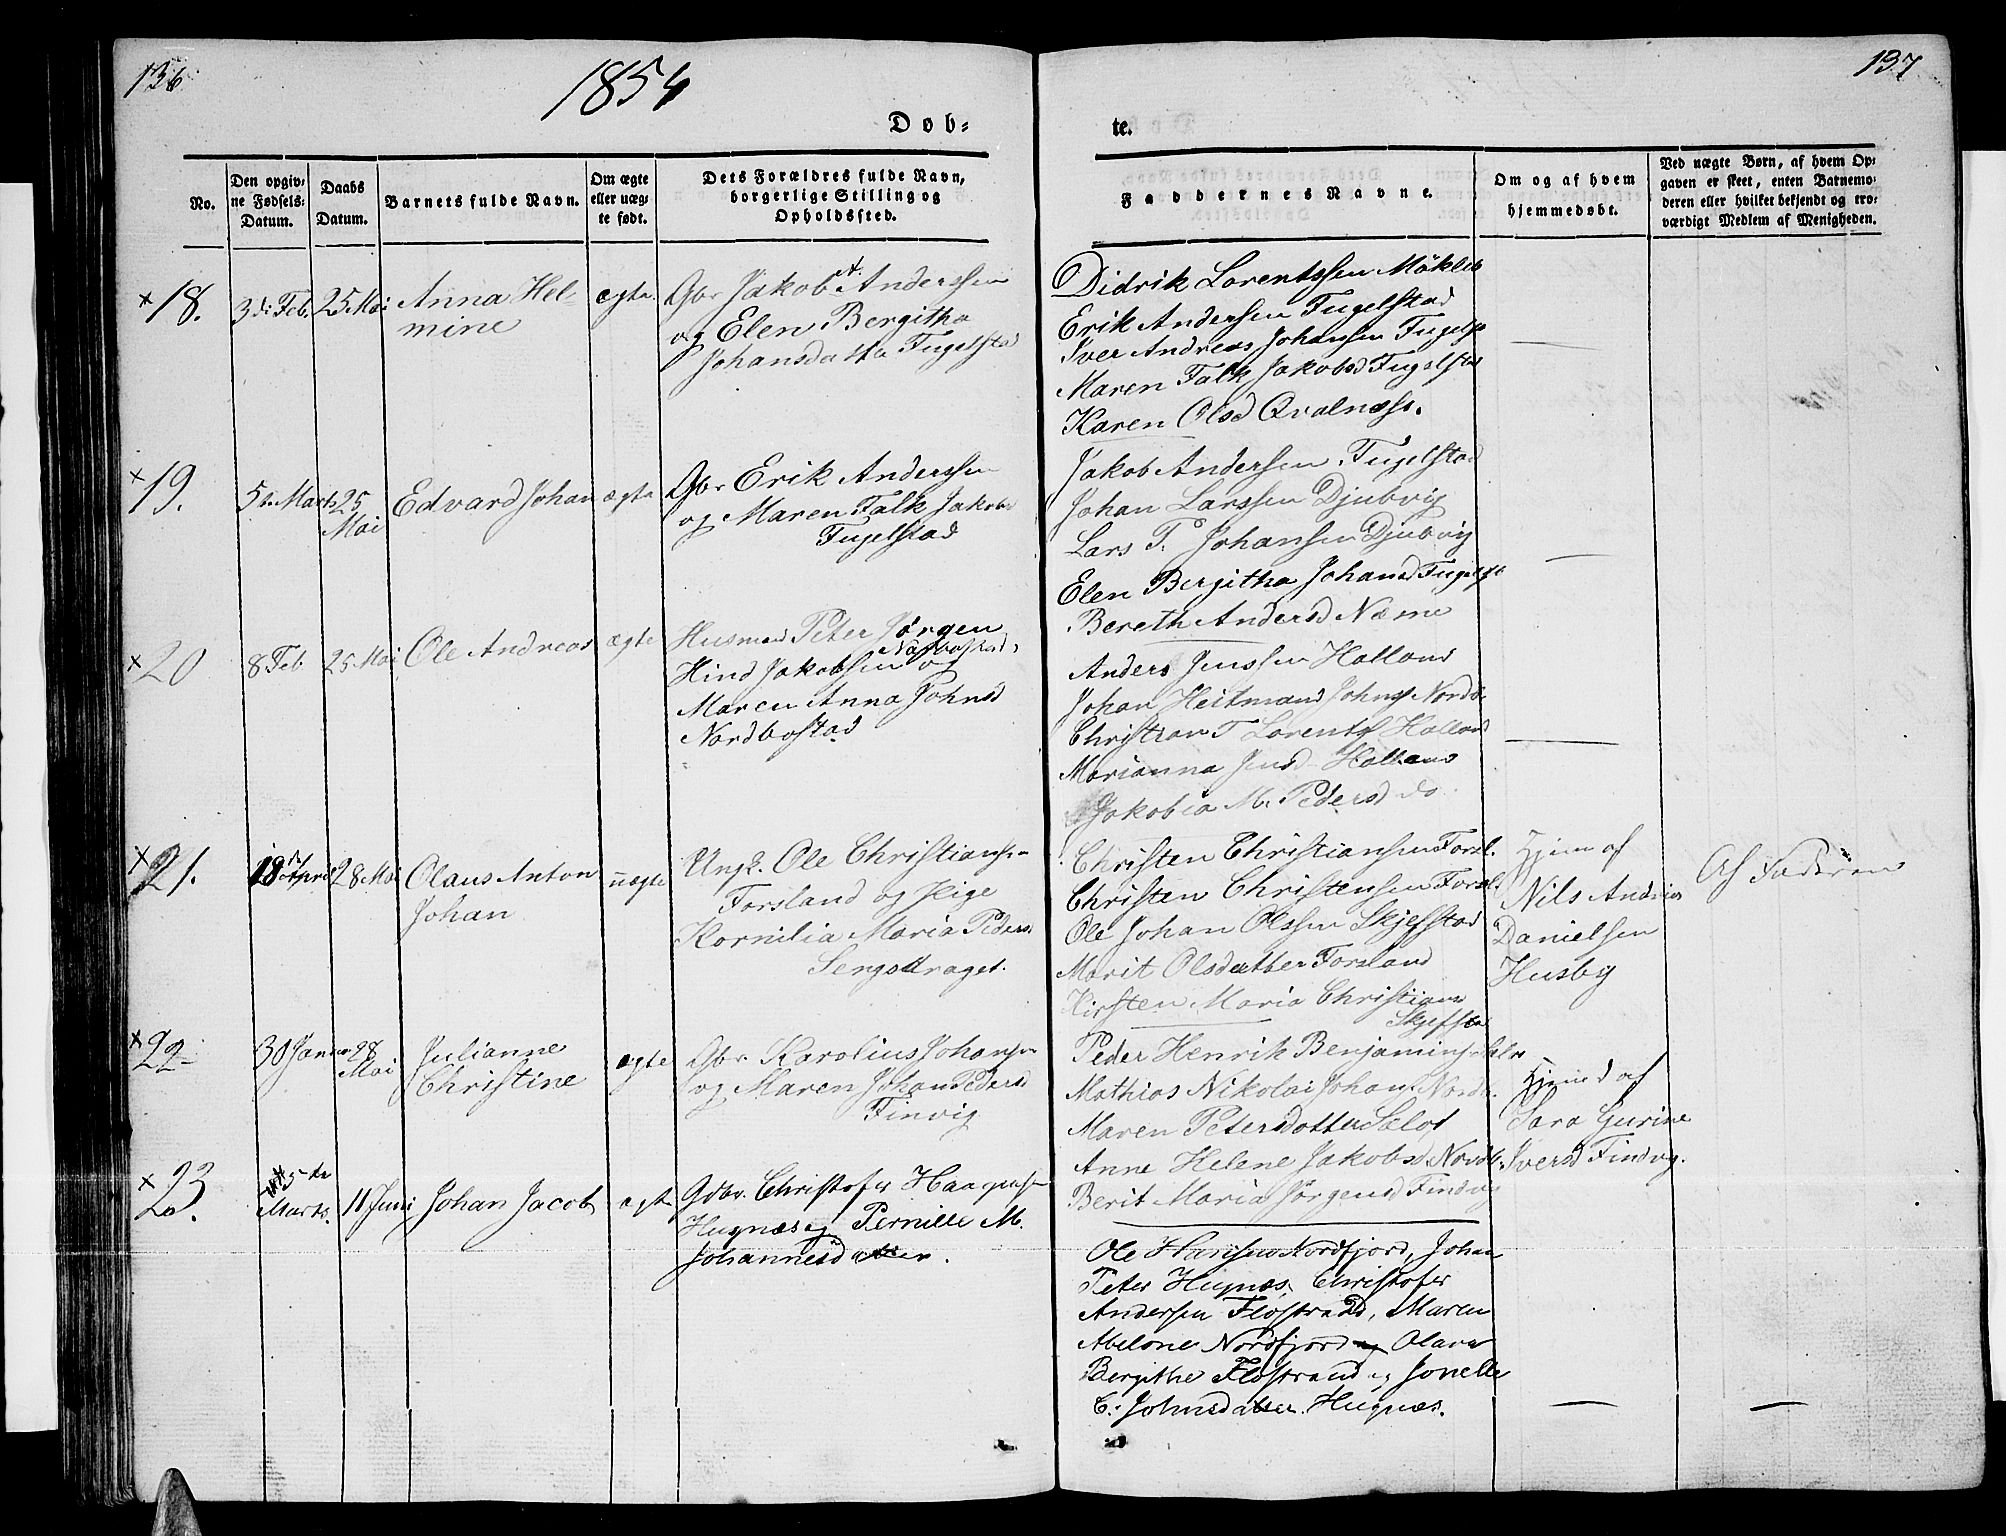 136
1854
Døb-
No.
Den opgiv-
ne Fødsels-
Datum.
Daabs
Datum.
Barnets fulde Navn.
Om ægte
eller uæg-
te født.
Dets Forældres fulde Navn,
borgerlige Stilling og
Opholdssted.
× 18.
3di Feb.
25 Mai
Anna Hel-
mine
ægte
Gbr Jakob A. Anderssen
og Elen Bergitha
Johansdatter Fugelstad
× 19.
5te Marts
25
Mai
Edvard Johan
ægte
Gbr Erik Anderssen
og Maren Falk Jakobsd
Fugelstad
× 20
8 Feb.
25 Mai
Ole Andreas
ægte
Husmand Peter Jørgen
Hind Jakobsen Nordbostad og
Maren Anna Johnsd
Nordbostad
× 21.
18 April
28 Mai
Olaus Anton
Johan
uægte
Ungk. Ole Christians-
Forsland og Pige
Kornilia Maria Pedersd
Lengstraget.
× 22
30 Januar
28
Mai
Julianne
Christine
ægte
Gbr. Karolius Johans-
og Maren Johan Pedersd
Finvig
× 23.
5te
Marts.
11 Juni
Johan Jacob
ægte
Gdbr. Christofer Haagens-
Hugnæs og Pernille M.
Johannesdatter.
137
te.
Faddernes Navne.
Om og af hvem
hjemmedøbt.
Ved uægte Børn, af hvem Op-
gaven er skeet, enten Barnemo-
deren eller hvilket bekjendt og tro-
værdigt Medlem af Menigheden.
Didrik Lorentssen Mökleb
Erik Andersen Fugelstad
Iver Andreas Johansen Fugelst
Maren Falk Jakobsd Fugelstad
Karen Olsd Qvalnæss.
Jakob Andersen Fugelstad
Johan Larssen Djubvig
Lars T. Johansen Djubvig
Elen Bergitha Johansd Fugelst
Bereth Andersd Næsne
Anders Jenssen Holland
Johan Heitmand Johns Nordb.
Christian T Lorents Holland
Marianna Jensd Holland
Jakobia M. Pedersd do.
Christen Christiansen Forsl.
Christen Christensen Forsld
Ole Johan Olssen Skjefstad
Marit Olsdatter Forsland
Kirsten Maria Christians
Skjefsta
Hjem af
Nils Andreas
Danielsen
Husby
Af Faderen
Peder Henrik Benjamins
Mathias Nikolai Johans Nordb.
Maren Petersdotter
Anne Helene Jakobsd Nordb.
Berit Maria Jørgensd Findvig
Hjemd af
Sara Gurine
Iversd Findvig.
Ole Hansen Nordfjord, Johan
Peter Hugnæs, Christofer
Andersen Flostrand, Maren
Abelone Nordfjord og Olava
Bergithe Flostrand og Jonelle
C. Johnsdatter Hugnæs.